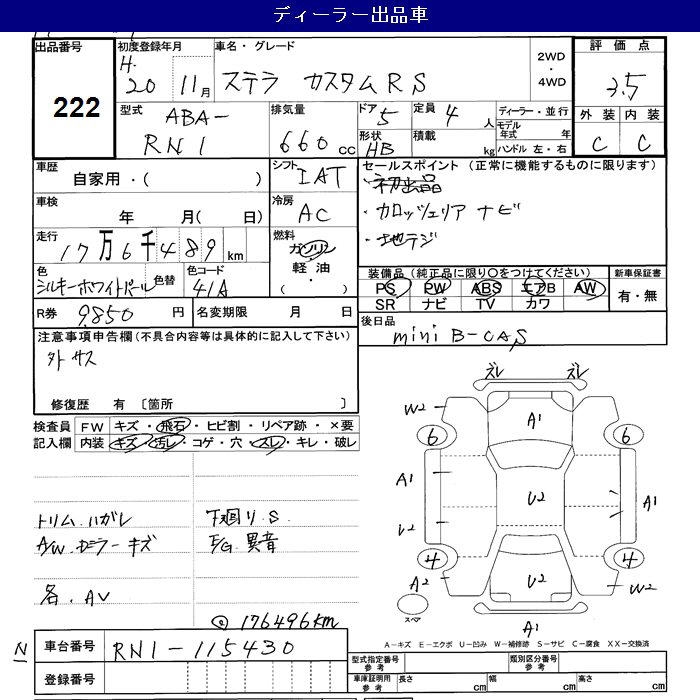 ディーラー出品車
出品番号
222
初度登録年月
H.
20 11月
車名・グレード
ステラ カスタムRS
2WD
・
4WD
評価点
3.5
外装 内装
C C
型式
ABA-
RN1
排気量
660cc
ドア
5
形状
HB
定員
4人
積載
kg
ディーラー・並行
モデル
年式 年
ハンドル 左・右
車歴
自家用・( )
シフト
IAT
セールスポイント (正常に機能するものに限ります)
・初出品
・カロッツェリア ナビ
・地デジ
車検
年 月( 日)
冷房
AC
走行
17万6千489km
燃料
ガソリン
・
軽油
・
( )
色
シルキーホワイトパール
色替
色コード
41A
装備品(純正品に限り○をつけてください)
PS PW ABS エアB AW
SR ナビ TV カワ
新車保証書
有・無
R券 9,850円
名変期限 月 日
後日品
mini B-CAS
注意事項申告欄(不具合内容等は具体的に記入して下さい)
外 サス
修復歴 有 〔箇所 〕
検査員
記入欄
FW キズ・飛石・ヒビ割・リペア跡・×要
内装 キズ・汚レ・コゲ・穴・スレ・キレ・破レ
トリム.ハガレ
A/W.ホイラー キズ
各.AV
下廻り.S.
E/G.異音
@176496km
ズレ ズレ
W2
A1
6 6
A1
U2
A1
U2
4 4
A2
U2
W2
スペア
A1
A−キズ E−エクボ U−凹み W−補修跡 S−サビ C−腐食 XX−交換済
N
車台番号
RN1-115430
登録番号
型式指定番号
参考
類別区分番号
参考
車庫証明用
参考
長さ cm
幅 cm
高さ cm